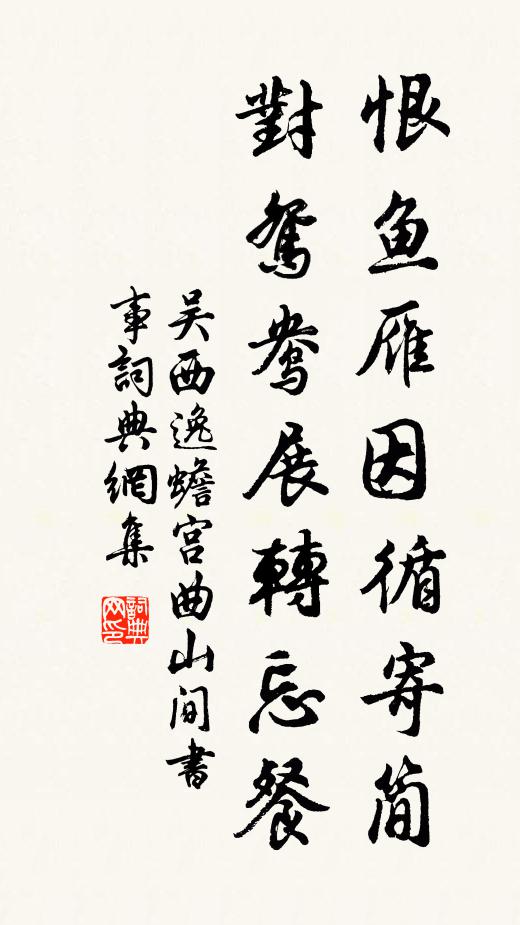 恨鱼雁因循寄简
對鴛鴦展轉忘餐
吴西逸蟾宫曲山间書
事詞典網集
詞典網印